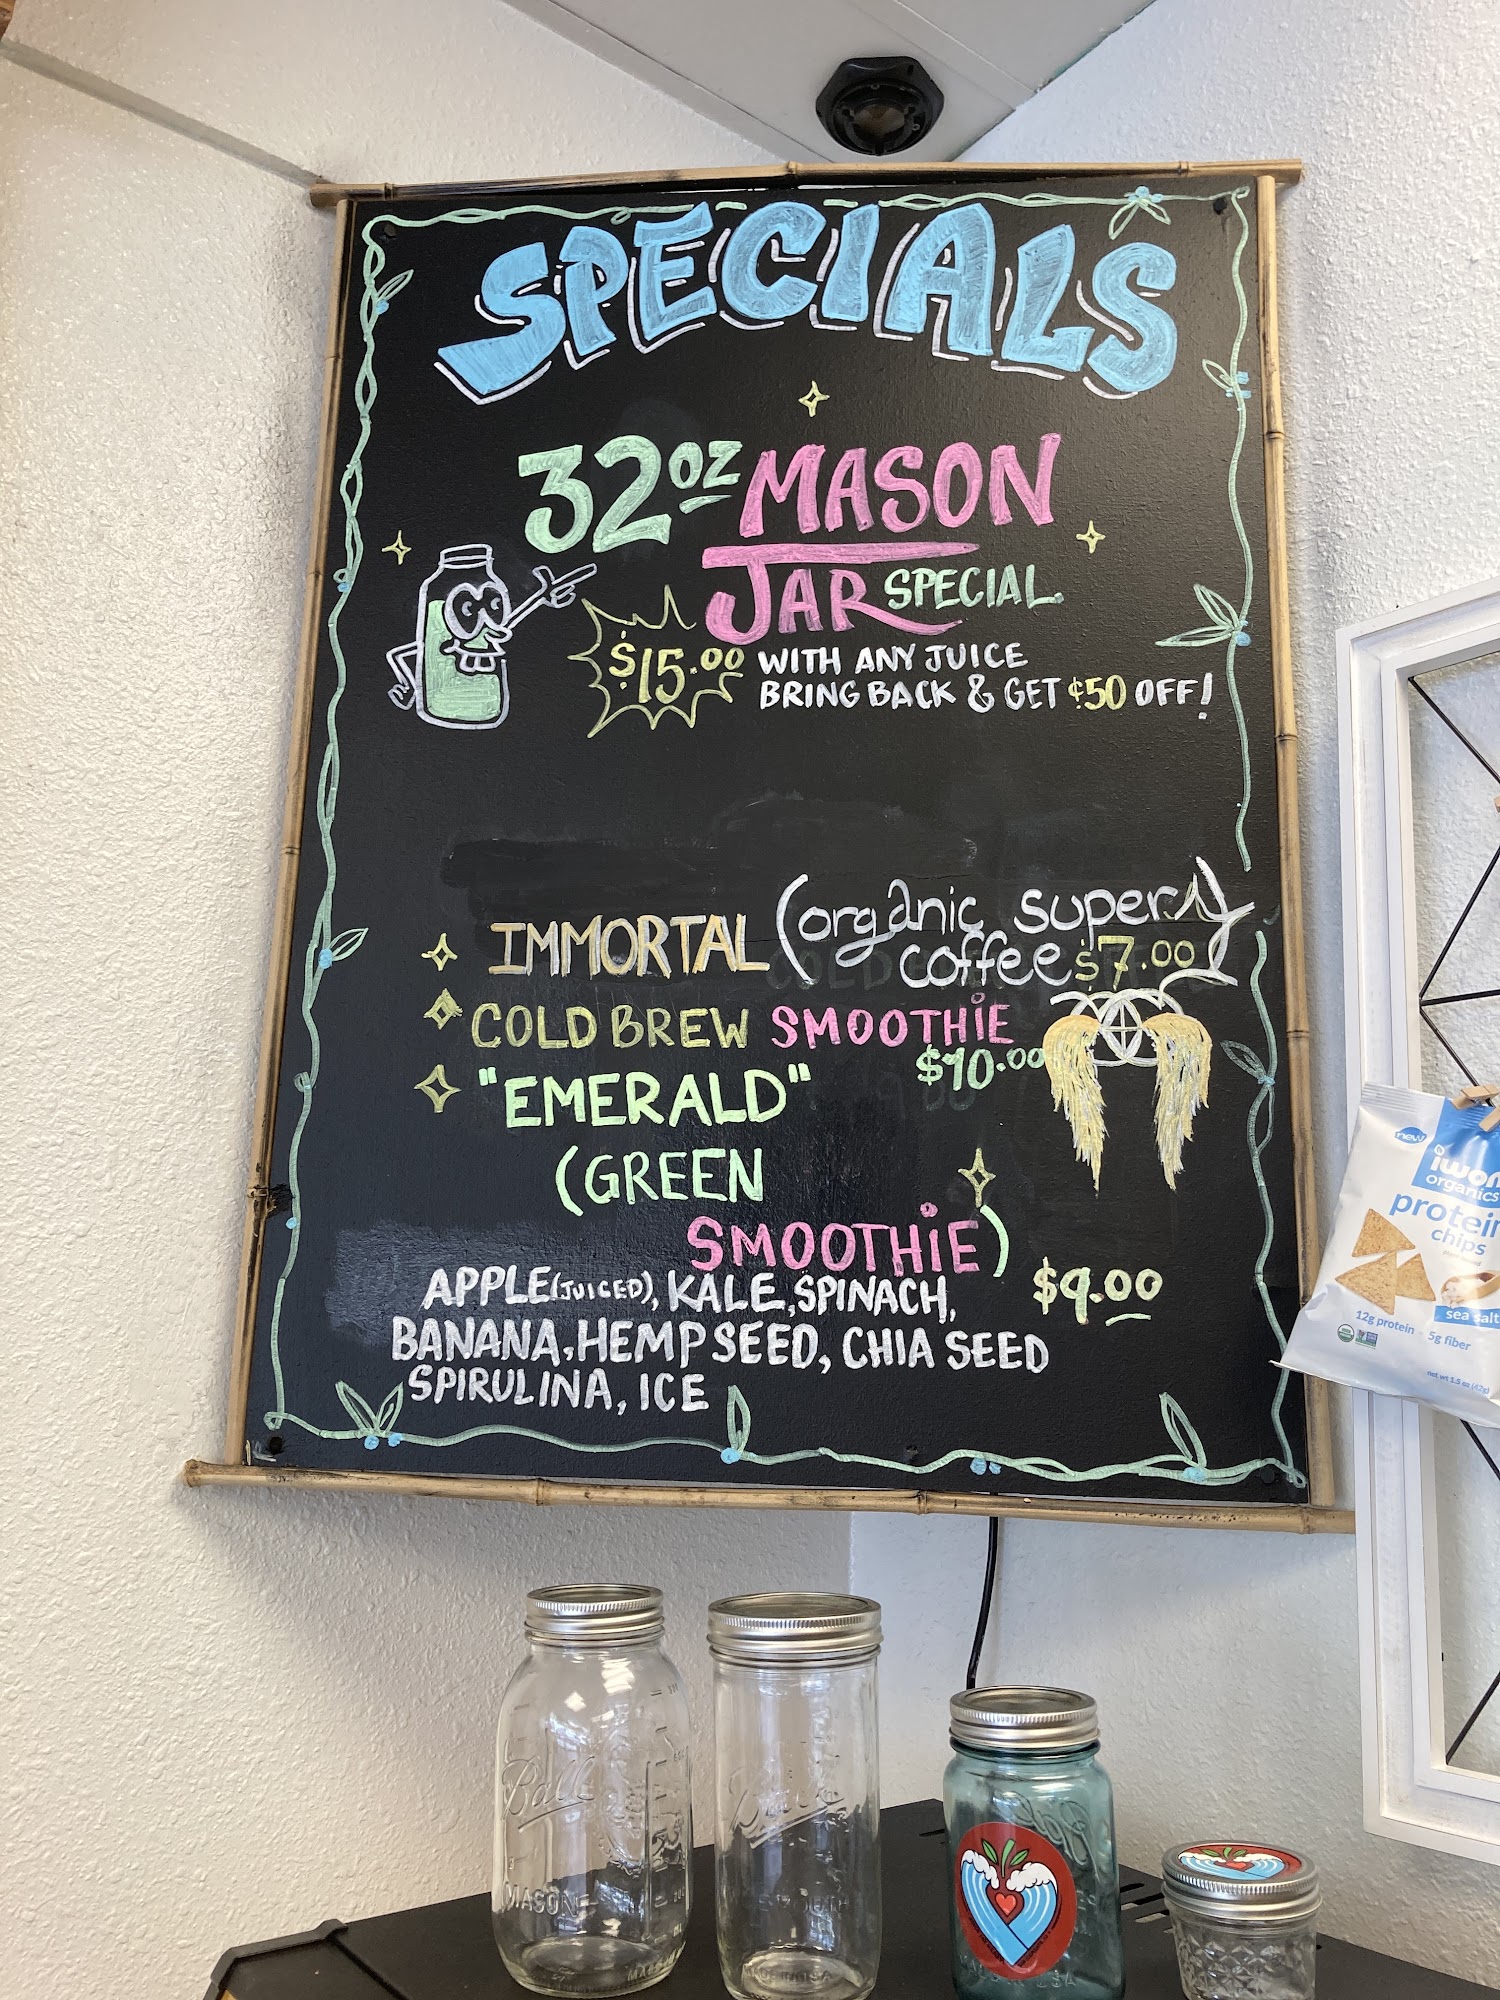 SPECIALS
32 oz MASON
JAR SPECIAL
$15.00 WITH ANY JUICE
BRING BACK & GET ¢50 OFF!
IMMORTAL (organic super
coffee $7.00)
COLD BREW SMOOTHiE
$10.00
"EMERALD"
(GREEN
SMOOTHiE)
APPLE (JUICED), KALE, SPINACH,
$9.00
BANANA, HEMP SEED, CHIA SEED
SPIRULINA, ICE
new
iwon
organics
protein
chips
sea salt
12g protein
5g fiber
net wt 1.5 oz (42g)
Ball
MASON